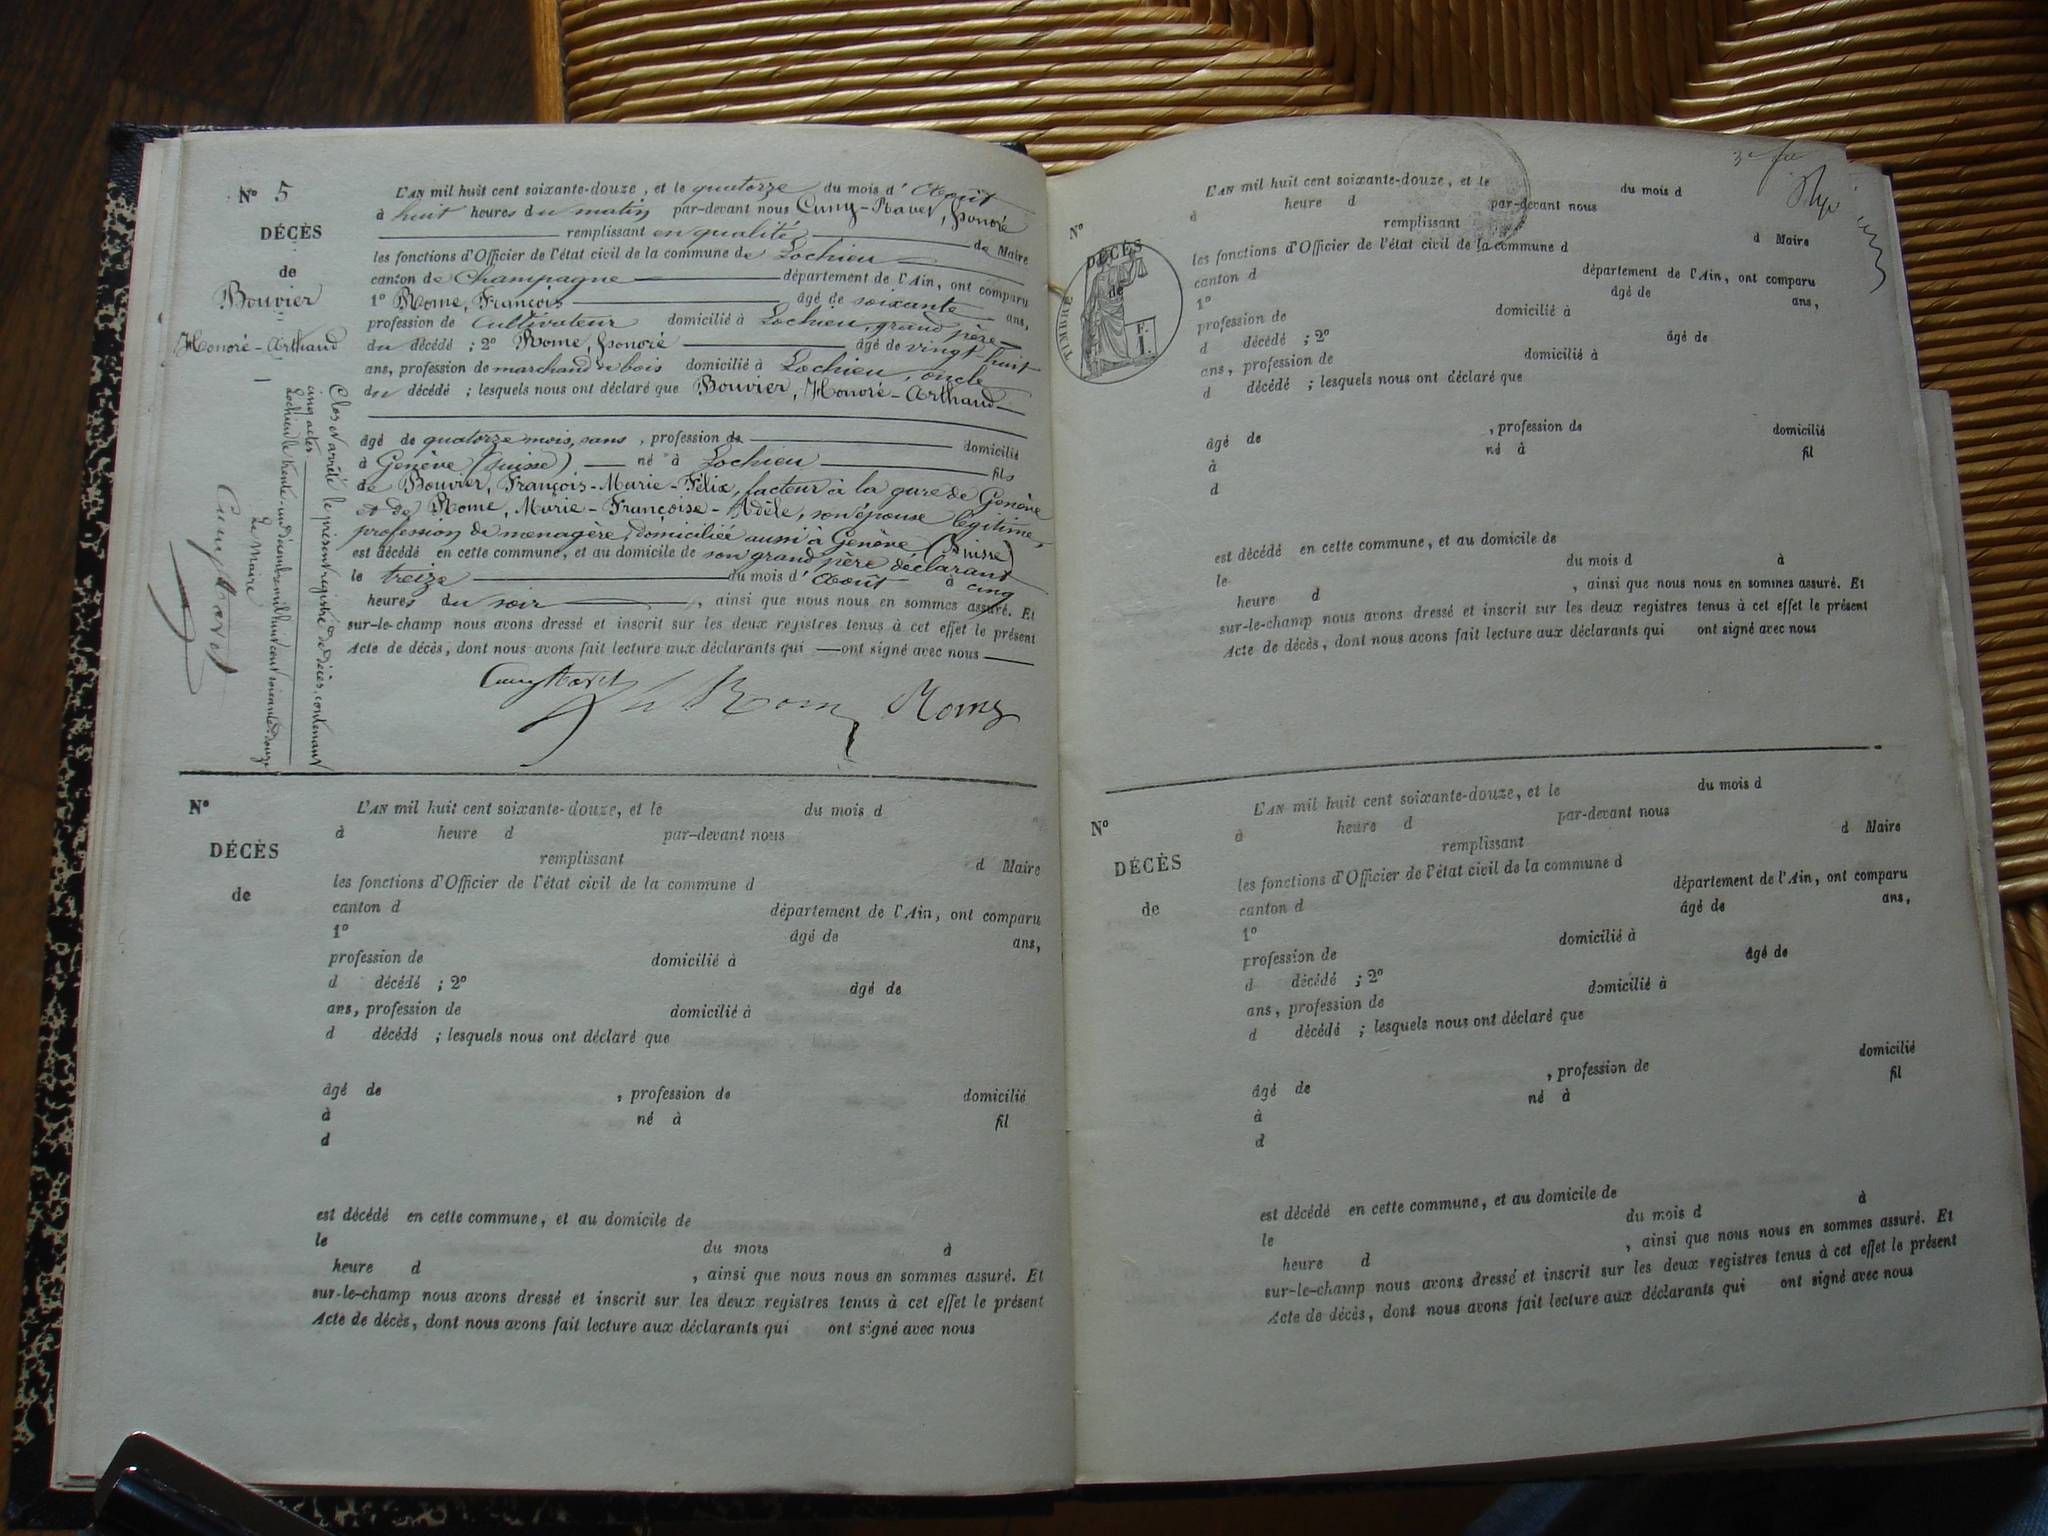 Nº 5
DÉCÈS
de
Bouvier
Honoré-Arthaud
L'AN mil huit cent soixante-douze, et le quatorze du mois d'Août
à huit heures du matin par-devant nous Cuny-Ravet, Honoré
remplissant en qualité de Maire
les fonctions d'Officier de l'état civil de la commune de Lochieu
canton de Champagne département de l'Ain, ont comparu
1º Rome, François âgé de soixante ans,
profession de Cultivateur domicilié à Lochieu, grand père
du décédé ; 2º Rome, Honoré âgé de vingt-huit
ans, profession de marchand de bois domicilié à Lochieu, oncle
du décédé ; lesquels nous ont déclaré que Bouvier, Honoré-Arthaud
âgé de quatorze mois, sans , profession de domicilié
à Genève (Suisse) né à Lochieu fils
de Bouvier, François-Marie-Félix, facteur à la gare de Genève
et de Rome, Marie-Françoise-Adèle, son épouse légitime,
profession de menagère, domiciliée aussi à Genève (Suisse)
est décédé en cette commune, et au domicile de son grand père déclarant
le treize du mois d'Août à cinq
heures du soir , ainsi que nous nous en sommes assuré. Et
sur-le-champ nous avons dressé et inscrit sur les deux registres tenus à cet effet le présent
Acte de décès, dont nous avons fait lecture aux déclarants qui ont signé avec nous
CunyRavet Rome Rome
Clos et arrêté le présent registre de décès, contenant
cinq actes
Lochieu le trente-un décembre mil huit cent soixante-douze
Le Maire
CunyRavet
Nº
DÉCÈS
de
L'AN mil huit cent soixante-douze, et le du mois d
à heure d par-devant nous
remplissant d Maire
les fonctions d'Officier de l'état civil de la commune d
canton d département de l'Ain, ont comparu
1º âgé de ans,
profession de domicilié à
d décédé ; 2º âgé de
ans, profession de domicilié à
d décédé ; lesquels nous ont déclaré que
âgé de , profession de domicilié
à né à fil
d
est décédé en cette commune, et au domicile de
le du mois à
heure d , ainsi que nous nous en sommes assuré. Et
sur-le-champ nous avons dressé et inscrit sur les deux registres tenus à cet effet le présent
Acte de décès, dont nous avons fait lecture aux déclarants qui ont signé avec nous
Nº
DÉCÈS
de
TIMBRE
F.
I.
L'AN mil huit cent soixante-douze, et le du mois d
à heure d par-devant nous
remplissant d Maire
les fonctions d'Officier de l'état civil de la commune d
canton d département de l'Ain, ont comparu
1º âgé de ans,
profession de domicilié à
d décédé ; 2º âgé de
ans, profession de domicilié à
d décédé ; lesquels nous ont déclaré que
âgé de , profession de domicilié
à né à fil
d
est décédé en cette commune, et au domicile de
le du mois d à
heure d , ainsi que nous nous en sommes assuré. Et
sur-le-champ nous avons dressé et inscrit sur les deux registres tenus à cet effet le présent
Acte de décès, dont nous avons fait lecture aux déclarants qui ont signé avec nous
Nº
DÉCÈS
de
L'AN mil huit cent soixante-douze, et le du mois d
à heure d par-devant nous
remplissant d Maire
les fonctions d'Officier de l'état civil de la commune d
canton d département de l'Ain, ont comparu
1º âgé de ans,
profession de domicilié à
d décédé ; 2º âgé de
ans, profession de domicilié à
d décédé ; lesquels nous ont déclaré que
âgé de , profession de domicilié
à né à fil
d
est décédé en cette commune, et au domicile de
le du mois d à
heure d , ainsi que nous nous en sommes assuré. Et
sur-le-champ nous avons dressé et inscrit sur les deux registres tenus à cet effet le présent
Acte de décès, dont nous avons fait lecture aux déclarants qui ont signé avec nous